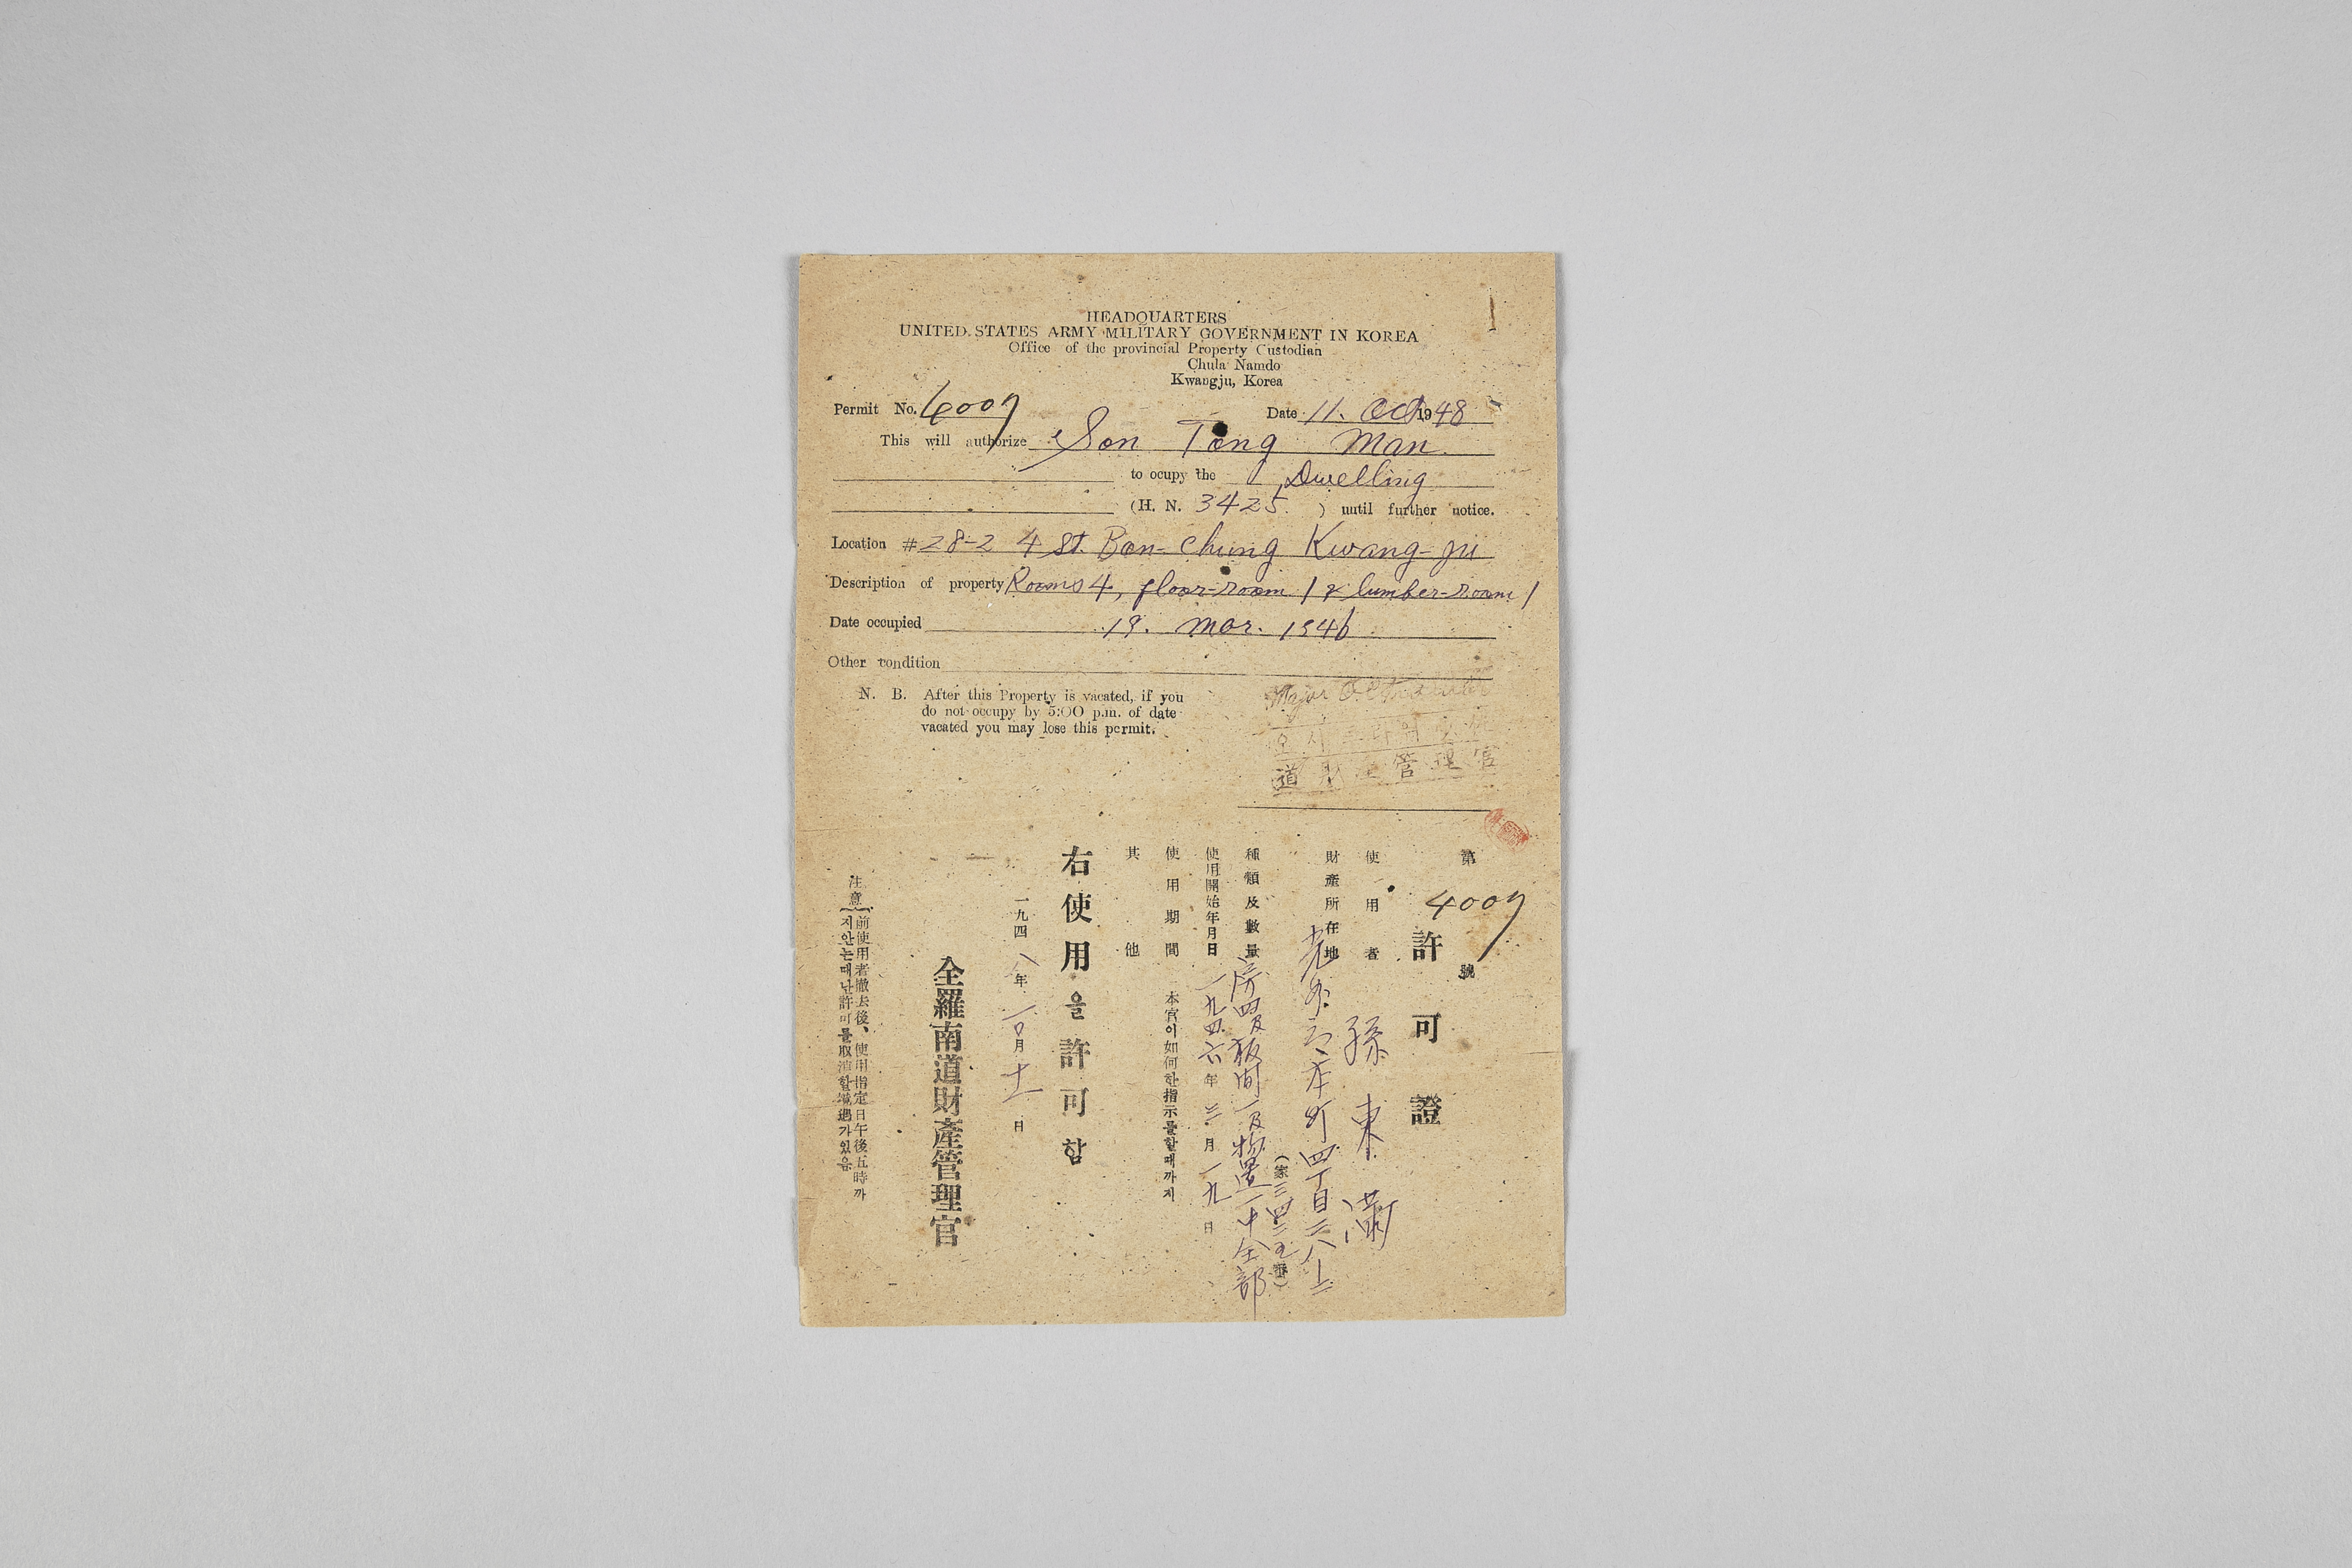 HEADQUARTERS
UNITED STATES ARMY MILITARY GOVERNMENT IN KOREA
Office of the provincial Property Custodian
Chula Namdo
Kwangju, Korea
Permit No. 4007 Date 11. Oct 1948
This will authorize Son Tong Man
to ocupy the Dwelling
(H. N. 3425 ) until further notice.
Location #28-2 4 St. Bon-chung Kwang-ju
Description of property Rooms 4, floor-room 1 & lumber-room 1
Date occupied 19. Mar. 1946
Other condition
N. B. After this Property is vacated, if you
do not occupy by 5:00 p.m. of date
vacated you may lose this permit.
Major
道財產管理官
第 4007 號
許可證
使用者 孫東滿
財產所在地 光州府本町四丁目二八ノ二
(家三四二五番)
種類及數量 房四及板間一及物置一中全部
使用開始年月日 一九四六年三月一九日
使用期間 本官이如何한指示를할때까지
其他
右使用을許可함
一九四八年一〇月十一日
全羅南道財產管理官
注意 前使用者撤去後、使用指定日午後五時까
지안는때난許可를取消할境遇가있음